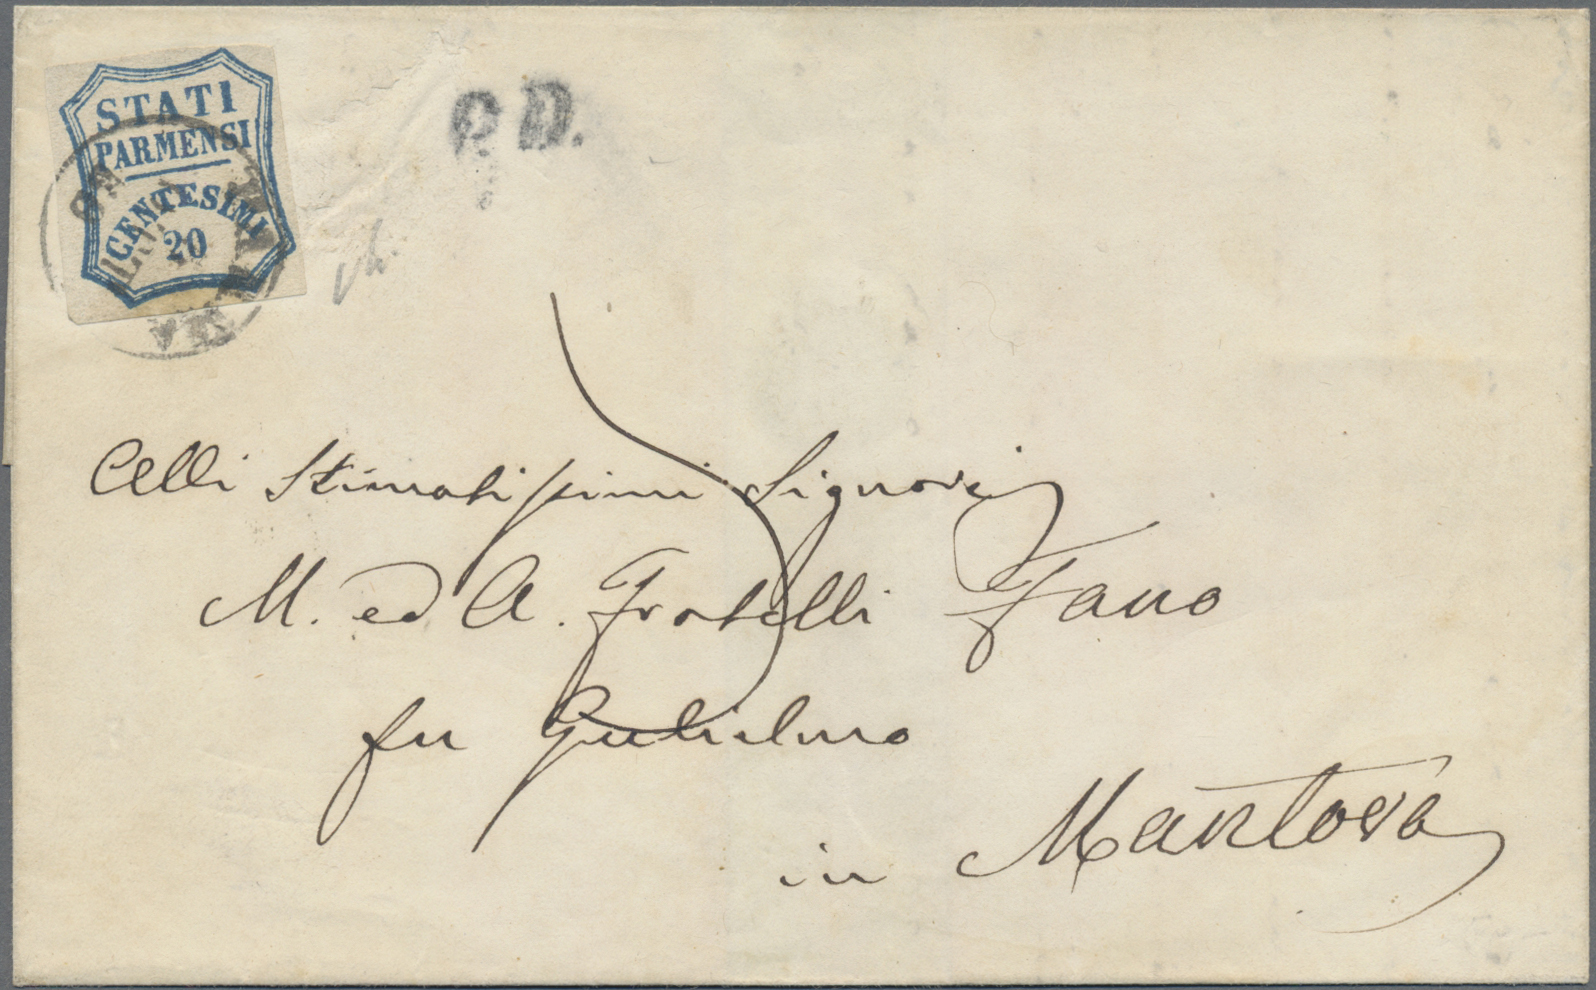 STATI
PARMENSI
CENTESIMI
20
P.D.
Alli Stimatissimi Signori
M. ed A. Fratelli Fano
fu Gulielmo
in Mantova